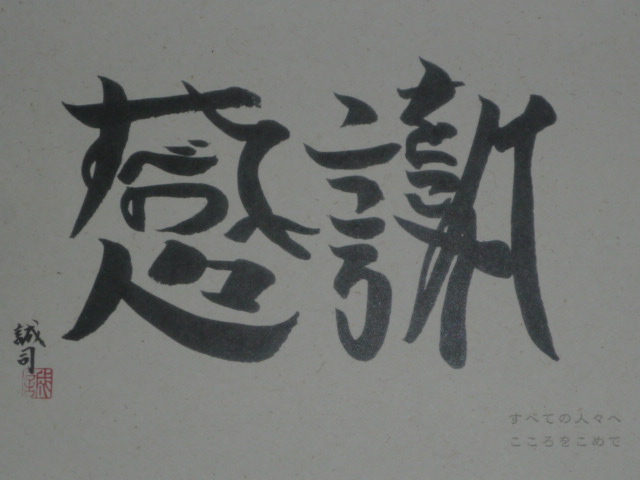 感謝
誠司
すべての人々へ
こころをこめて